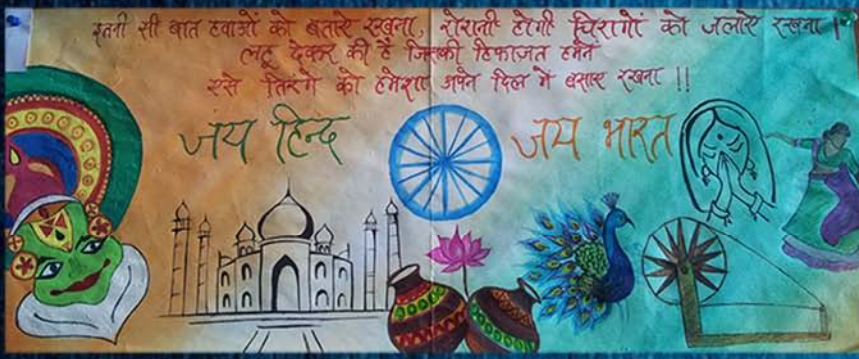 इतनी सी बात हवाओं को बताऐ रखना, रोशनी होगी चिरागों को जलाऐ रखना।
लहू देकर की है जिसकी हिफाज़त हमने
ऐसे तिरंगे को हमेशा अपने दिल में बसाए रखना !!
जय हिन्द जय भारत